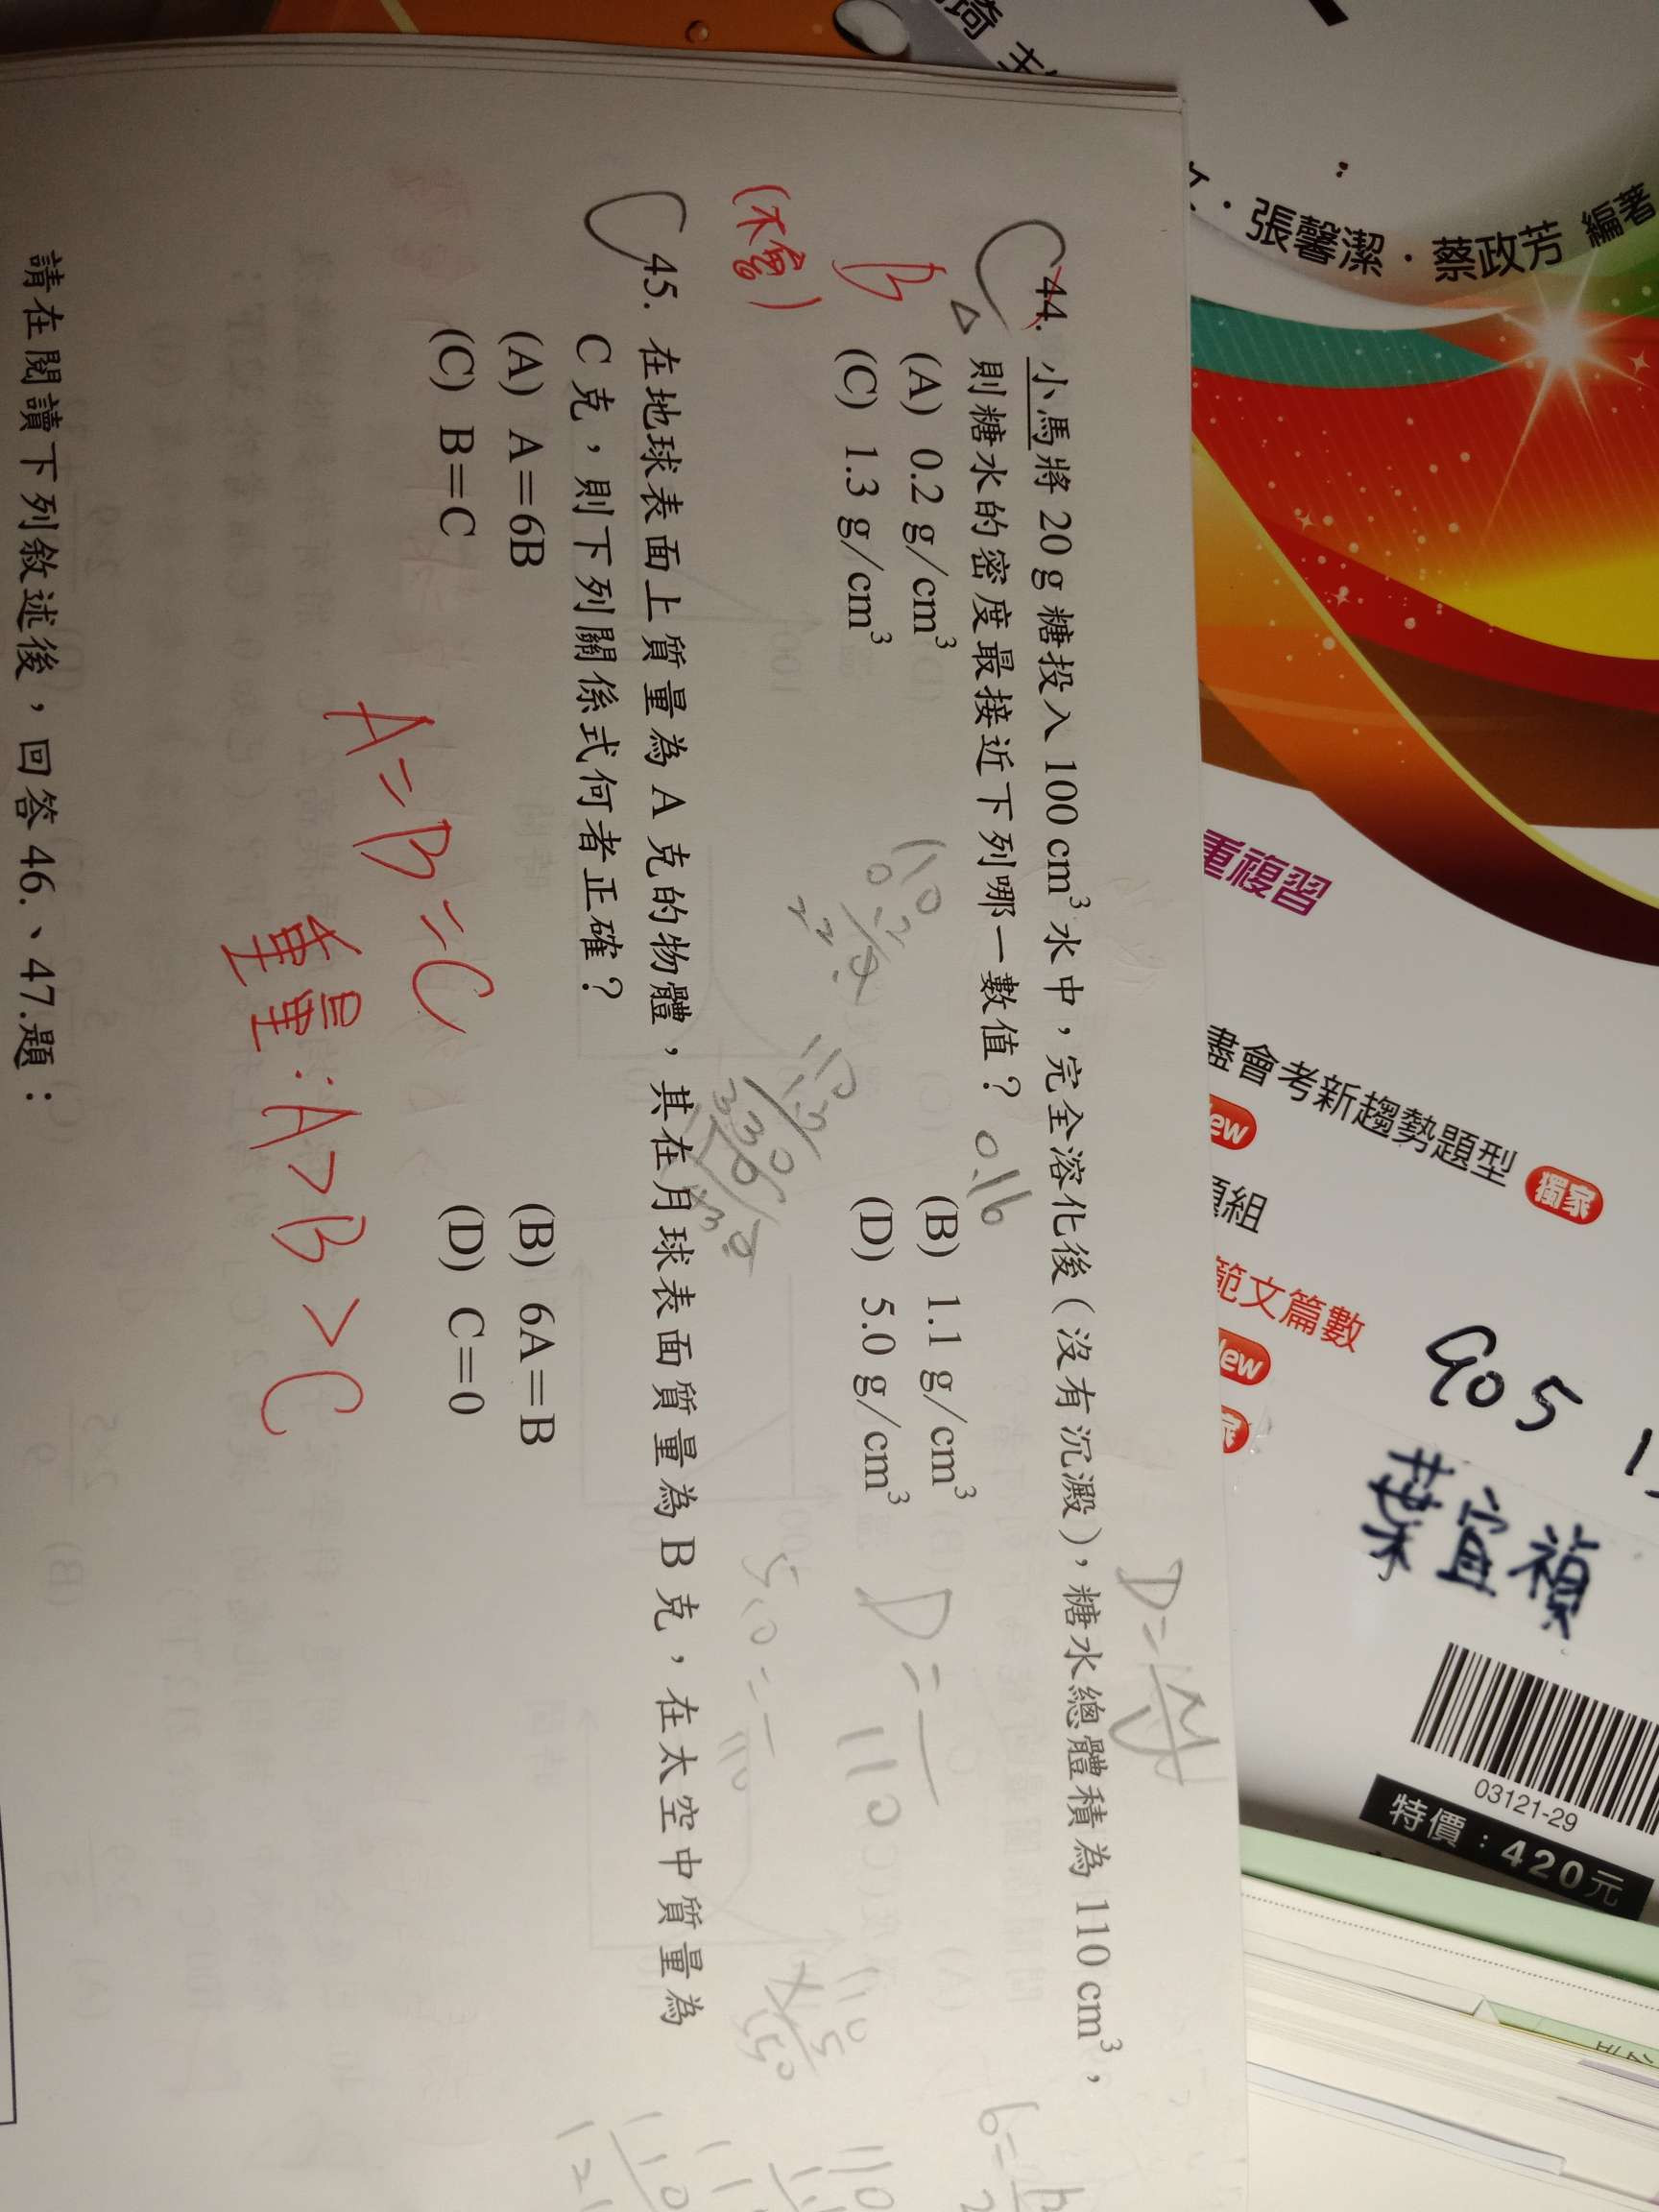 C 44. 小馬將 20 g 糖投入 100 cm³ 水中，完全溶化後（沒有沉澱），糖水總體積為 110 cm³，
△ 則糖水的密度最接近下列哪一數值？ 0.16
B
(A) 0.2 g/cm³ (B) 1.1 g/cm³
(C) 1.3 g/cm³ (D) 5.0 g/cm³
(不會)
D=M/V
D=—
110
C 45. 在地球表面上質量為 A 克的物體，其在月球表面質量為 B 克，在太空中質量為
C 克，則下列關係式何者正確？
(A) A=6B (B) 6A=B
(C) B=C (D) C=0
A=B=C
重量：A>B>C
請在閱讀下列敘述後，回答 46.、47.題：
張馨潔．蔡政芳 編著
重複習
會考新趨勢題型 獨家
題組
範文篇數
905
葉宜禎
03121-29
特價：420元